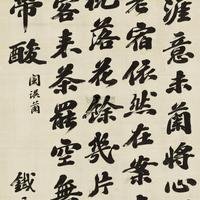 涯意未蘭將心
老宿依然在案
枕落花餘幾片
客来茶罷空無
帶酸
鐵